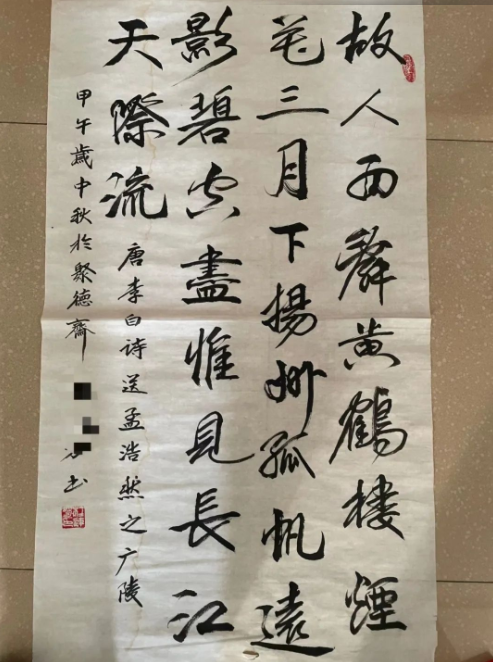 故人西辭黄鶴樓煙
花三月下揚州孤帆遠
影碧空盡惟見長江
天際流
唐李白诗送孟浩然之广陵
甲午歲中秋於聚德齋
书